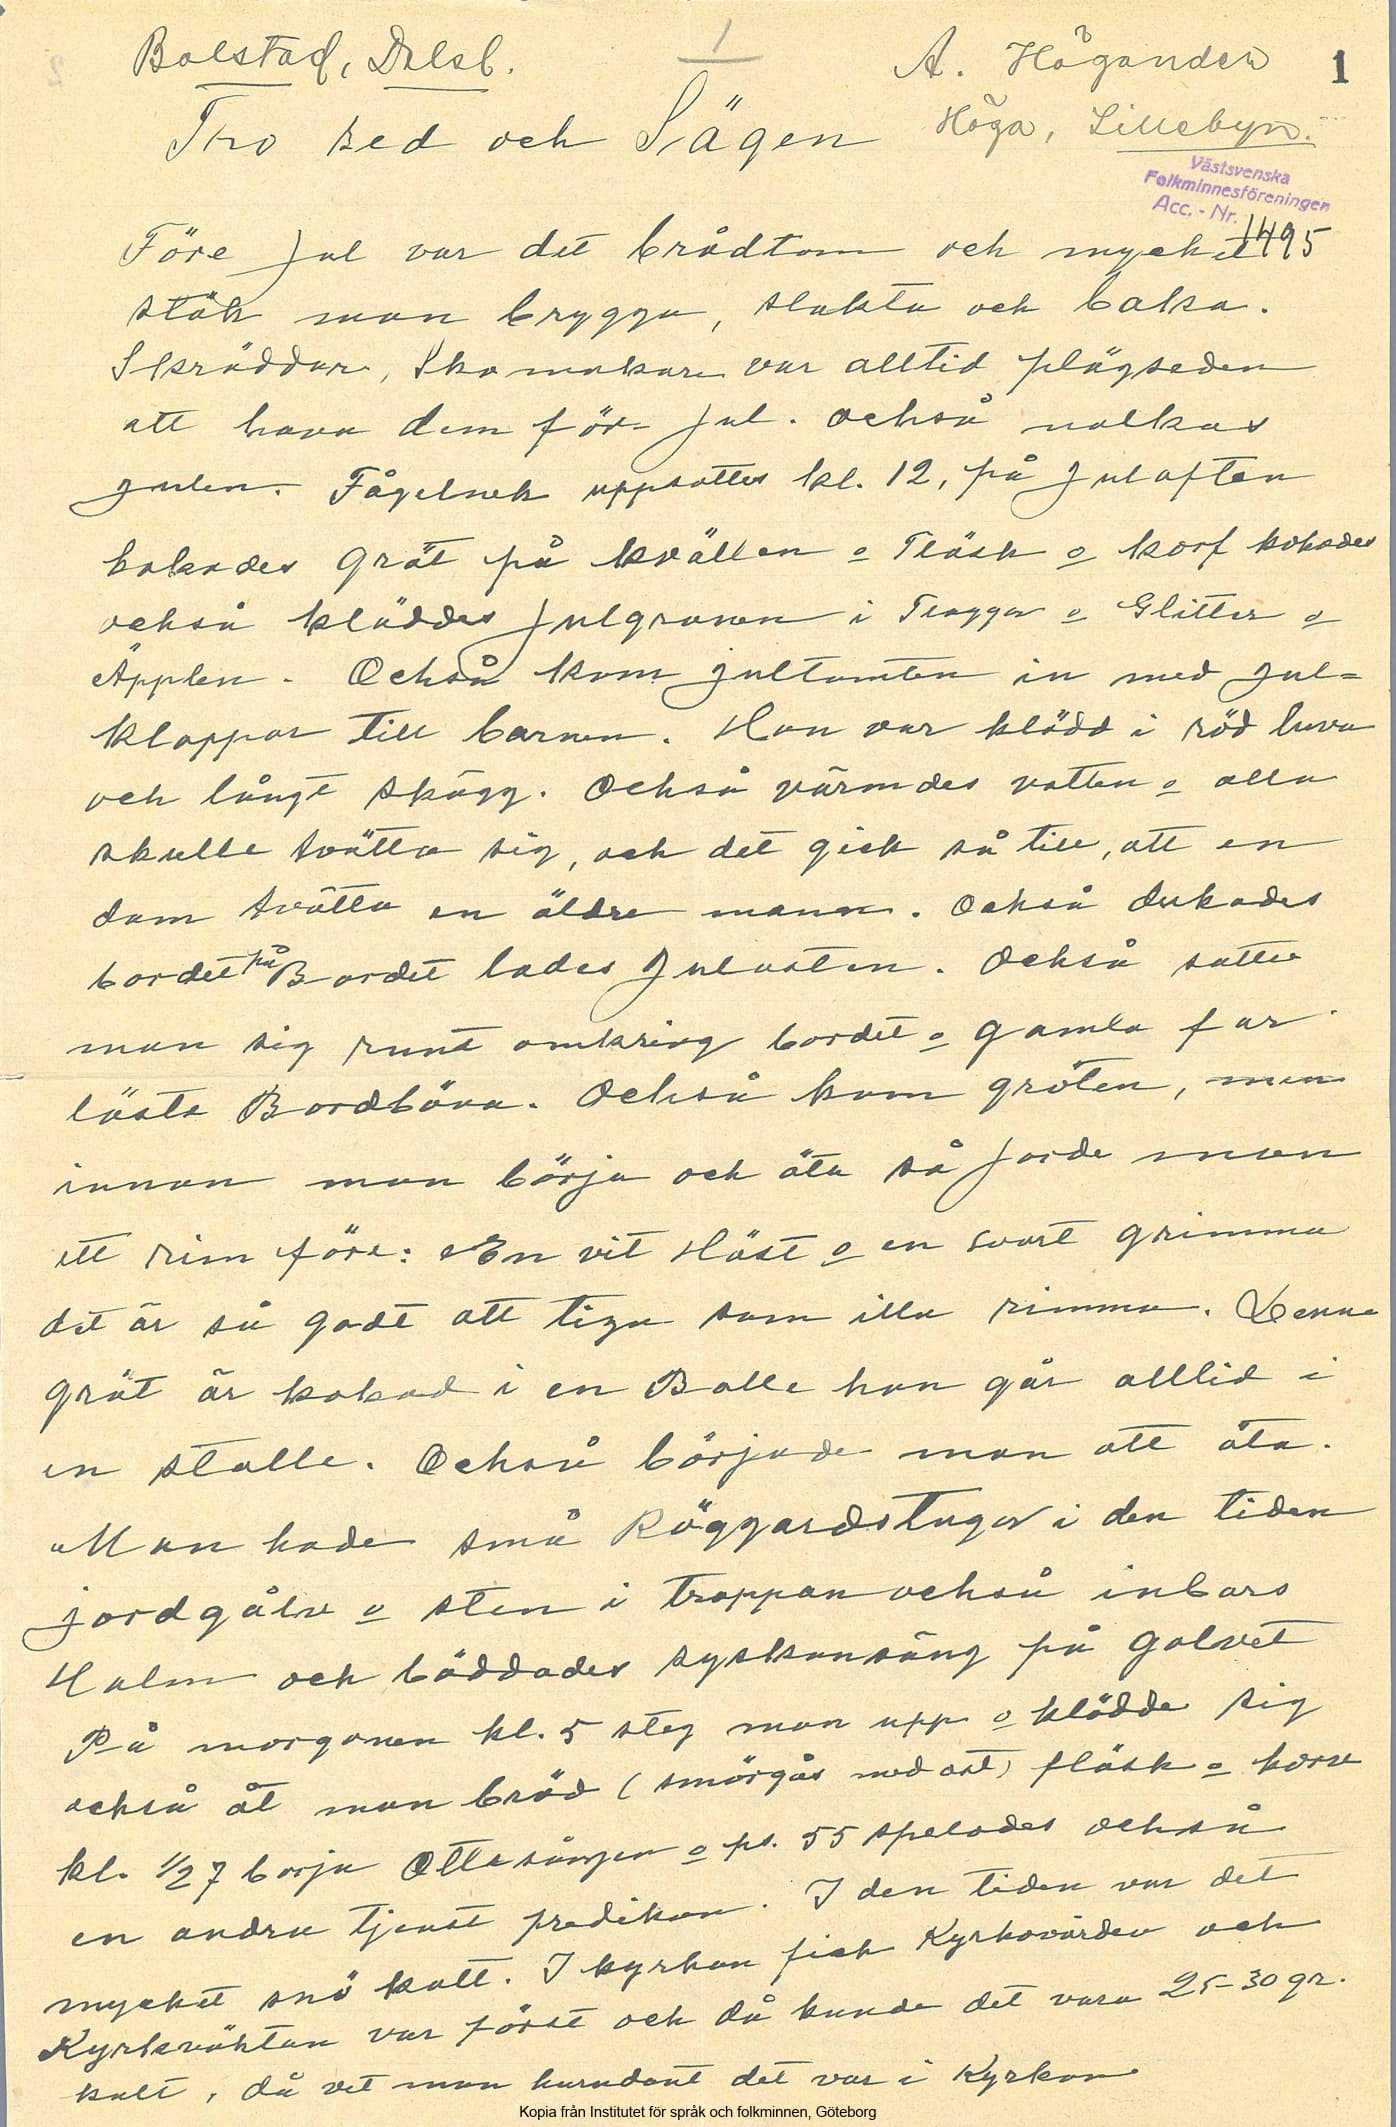 Bolstad, Dalsl.
1
A. Högander
1
Tro sed och Sägen
Höga, Lillebyn.
Västsvenska
Folkminnesföreningen
Acc. - Nr. 1495
Före Jul var det brådtom och mycket
stök man brygga, slakta och baka.
Skräddare, Skomakare var alltid plägseden
att hava dem för Jul. också nalkas
julen. Fågelnek uppsattes kl. 12, på Julaften
kokades Gröt på kvällen o Fläsk o korf kokades
också kläddes Julgranen i Flaggor o Glitter o
Äpplen. Också kom jultomten in med Jul=
klappar till barnen. Han var klädd i röd luva
och långt skägg. Också värmdes vatten o alla
skulle tvätta sig, och det gick så till, att en
dam tvätta en äldre mann. Också dukades
bordet på Bordet lades Julosten. Också satte
man sig runt omkring bordet o gamla far
läste Bordbön. Också kom gröten, men
innan man börja och äta så Jorde man
ett rim före: En vit Häst o en svart grimma
det är så godt att tiga som illa rimma. Denna
gröt är kokad i en Balle han går alltid i
en stalle. Också började man att äta.
Man hade små Röggardstugor i den tiden
jordgålv o sten i trappan också inbars
Halm och bäddades syskonsäng på golvet
På morgonen kl. 5 steg man upp o klädde sig
också åt man bröd (smörgås med ost) fläsk o korv
kl. 1/2 7 börja Ottesången o ps. 55 spelades också
en andra tjenst predikan. I den tiden var det
mycket snö kallt. I kyrkan fick Kyrkovärden och
Kyrkväktan var först och då kunde det vara 25-30 gr.
kallt, då vet man hurudant det var i Kyrkan
Kopia från Institutet för språk och folkminnen, Göteborg